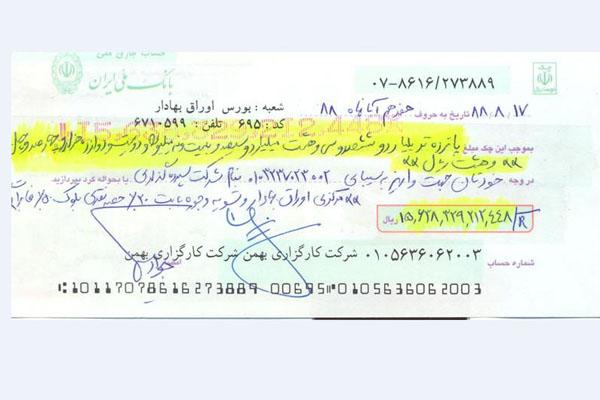 حساب جاری ملی
بانک ملی ایران
چک
۰۷-۸۶۱۶/۲۷۳۸۸۹
۸۸،۸،۱۷ تاریخ به حروف هفدهم آبانماه ۸۸ شعبه : بورس اوراق بهادار
کد : ۶۹۵ تلفن : ۶۷۱۰۵۹۹
بموجب این چک مبلغ پانزده تریلیارد و ششصد و سی و هشت میلیارد و سیصد و بیست و نه میلیون و دویست و دوازده هزار و چهارصد و چهل
و هشت ریال
در وجه خودتان جهت واریز به سیبای ۰۱۰۳۲۳۷۰۲۳۰۰۲ بنام شرکت سپرده گذاری یا بحواله کرد بپردازید
مرکزی اوراق بهادار و تسویه وجوه بابت ۲۰٪ حصه نقدی بلوک ۵۰٪
۱۵,۶۲۸,۳۲۹,۲۱۲,۴۴۸/R ریال
شماره حساب ۰۱۰۵۶۳۶۰۶۲۰۰۳ شرکت کارگزاری بهمن شرکت کارگزاری بهمن
1011707861627388​9 00695 0105636062003